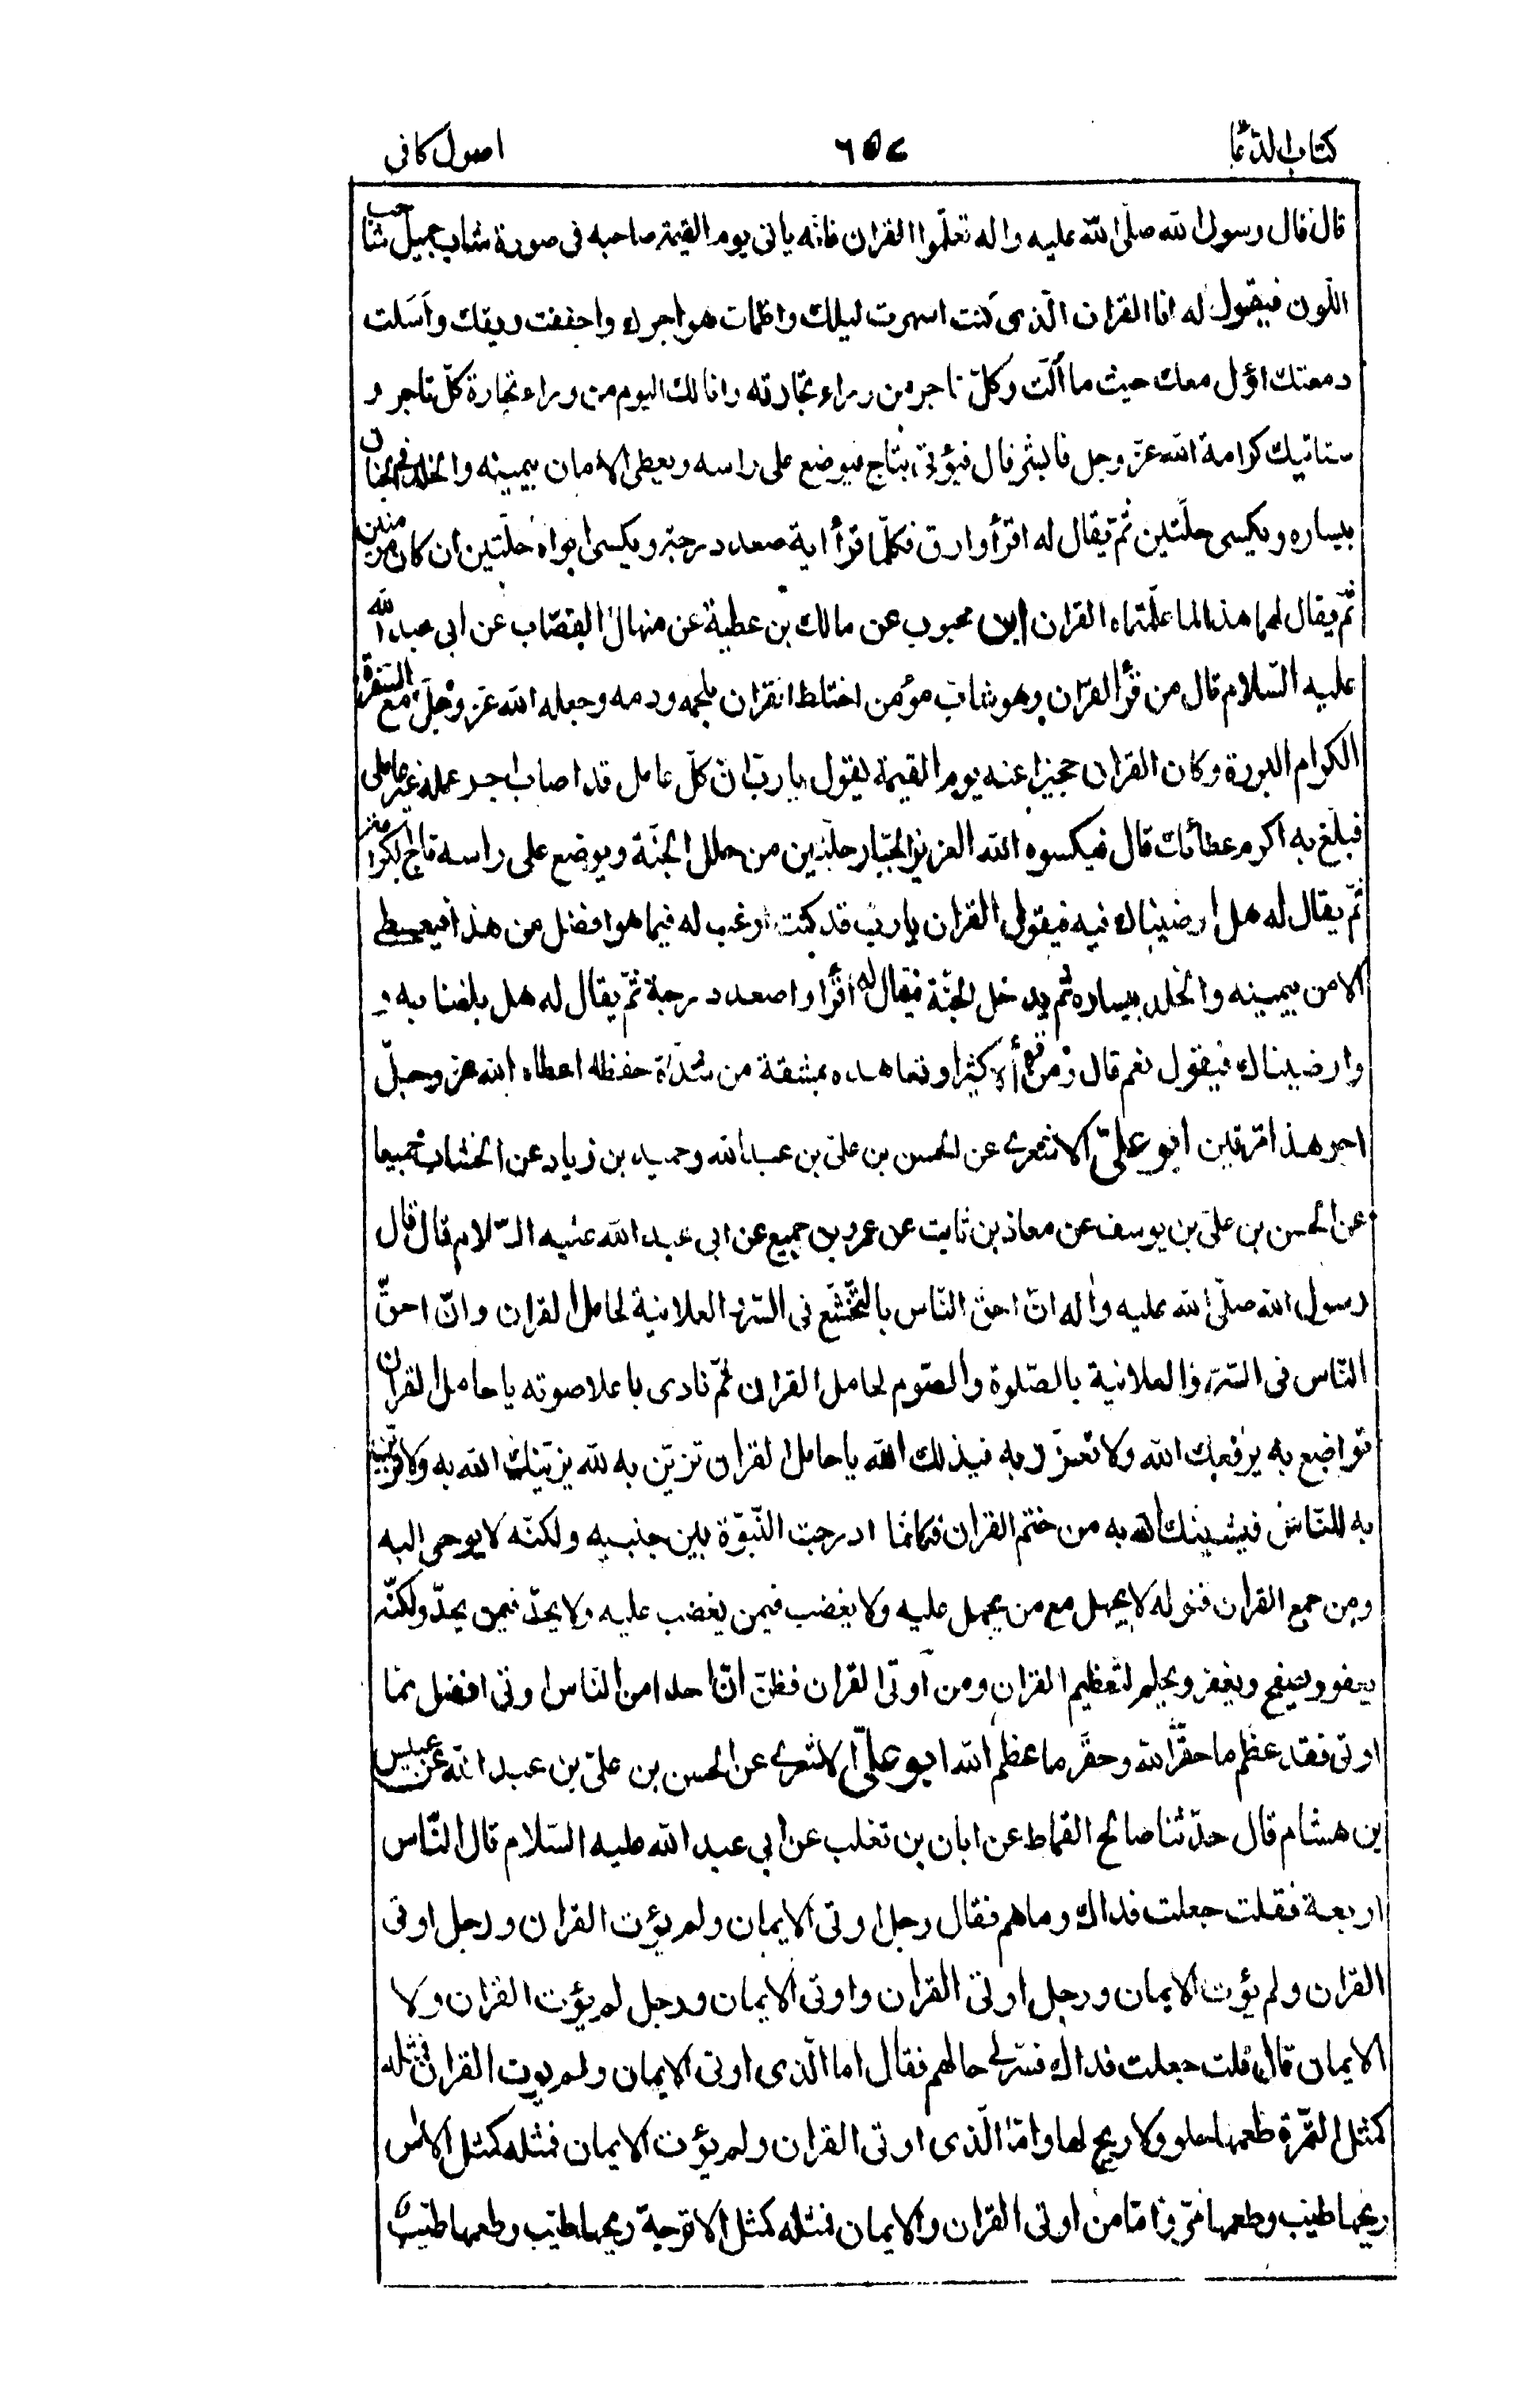 كتاب الدعا ٦٥٧ اصول كافى
قال قال رسول الله صلّى الله عليه واله تعلّموا القران فانّه ياتى يوم القيمة صاحبه فى صورة شاب جميل شاحب
اللّون فيقول له انا القران الّذى كنت اسهرت ليلك واظمات هواجرك واجففت ريقك وأسَلت
دمعتك اؤل معك حيث ما ألت وكلّ تاجر من وراء تجارته وانا لك اليوم من وراء تجارة كلّ تاجر و
ستاتيك كرامة الله عزّ وجل فابشر قال فيؤتى بتاج فيوضع على راسه ويعطى الامان بيمينه والخلد فى الجنان
بيساره ويكسى حلّتين ثمّ يقال له اقرأ وارق فكلّما قرأ اية صعد درجة ويكسى ابواه حلّتين ان كانا مؤمنين
ثمّ يقال لهما هذا لما علّمتماه القران ابن محبوب عن مالك بن عطية عن منهال القصّاب عن ابى عبد الله
عليه السّلام قال من قرأ القران وهو شابّ مؤمن اختلط القران بلحمه ودمه وجعله الله عزّ وجلّ مع السّفرة
الكرام البررة وكان القران حجيزا عنه يوم القيمة يقول يا ربّ انّ كلّ عامل قد اصاب اجر عمله غير عاملى
فبلّغ به اكرم عطائك قال فيكسوه الله العزيز الجبّار حلّتين من حلل الجنّة ويوضع على راسه تاج الكرامة
ثمّ يقال له هل ارضيناك فيه فيقول القران يا ربّ قد كنت ارغب له فيما هو افضل من هذا فيعطى
الامن بيمينه والخلد بيساره ثم يدخل الجنّة فيقال له اقرأ واصعد درجة ثمّ يقال له هل بلغنا به و
وارضيناك فيقول نعم قال ومن قرأه كثيرا وتعاهده بمشقة من شدّة حفظه اعطاه الله عز وجلّ
اجر هذا مرّتين ابو علىّ الاشعرى عن الحسن بن علىّ بن عبد الله وحميد بن زياد عن الخشاب جميعا
عن الحسن بن علىّ بن يوسف عن معاذ بن ثابت عن عمرو بن جميع عن ابى عبد الله عليه السّلام قال قال
رسول الله صلّى الله عليه واله انّ احقّ النّاس بالتّخشّع فى السّر والعلانية لحامل القران وانّ احقّ
النّاس فى السّر والعلانية بالصّلوة والصّوم لحامل القران ثمّ نادى باعلا صوته يا حامل القران
تواضع به يرفعك الله ولا تعزّز به فيذلك الله يا حامل القران تزيّن به لله يزيّنك الله به ولا تزيّن
به للنّاس فيشينك الله به من ختم القران فكانّما ادرجت النّبوّة بين جنبيه ولكنّه لا يوحى اليه
ومن جمع القران فنوله لا يجهل مع من يجهل عليه ولا يغضب فيمن يغضب عليه ولا يحدّ فيمن يحدّ ولكنّه
يعفو ويصفح ويغفر ويحلم لتعظيم القران ومن أوتى القران فظنّ انّ احدا من النّاس اوتى افضل ممّا
اوتى فقد عظّم ما حقّر الله وحقّر ما عظّم الله ابو علىّ الاشعرى عن الحسن بن علىّ بن عبد الله عن عبيس
بن هشام قال حدّثنا صالح القماط عن ابان بن تغلب عن ابى عبد الله عليه السّلام قال النّاس
اربعة فقلت جعلت فداك وما هم فقال رجل اوتى الايمان ولم يؤت القران ورجل اوتى
القران ولم يؤت الايمان ورجل اوتى القران واوتى الايمان ورجل لم يؤت القران ولا
الايمان قال قلت جعلت فداك فسّر لى حالهم فقال اما الّذى اوتى الايمان ولم يوت القران فمثله
كمثل الثّمرة طعمها حلو ولا ريح لها وامّا الّذى اوتى القران ولم يؤت الايمان فمثله كمثل الاس
ريحها طيّب وطعمها مرّ وامّا من أوتى القران والايمان فمثله كمثل الاترجة ريحها طيّب وطعمها طيّب